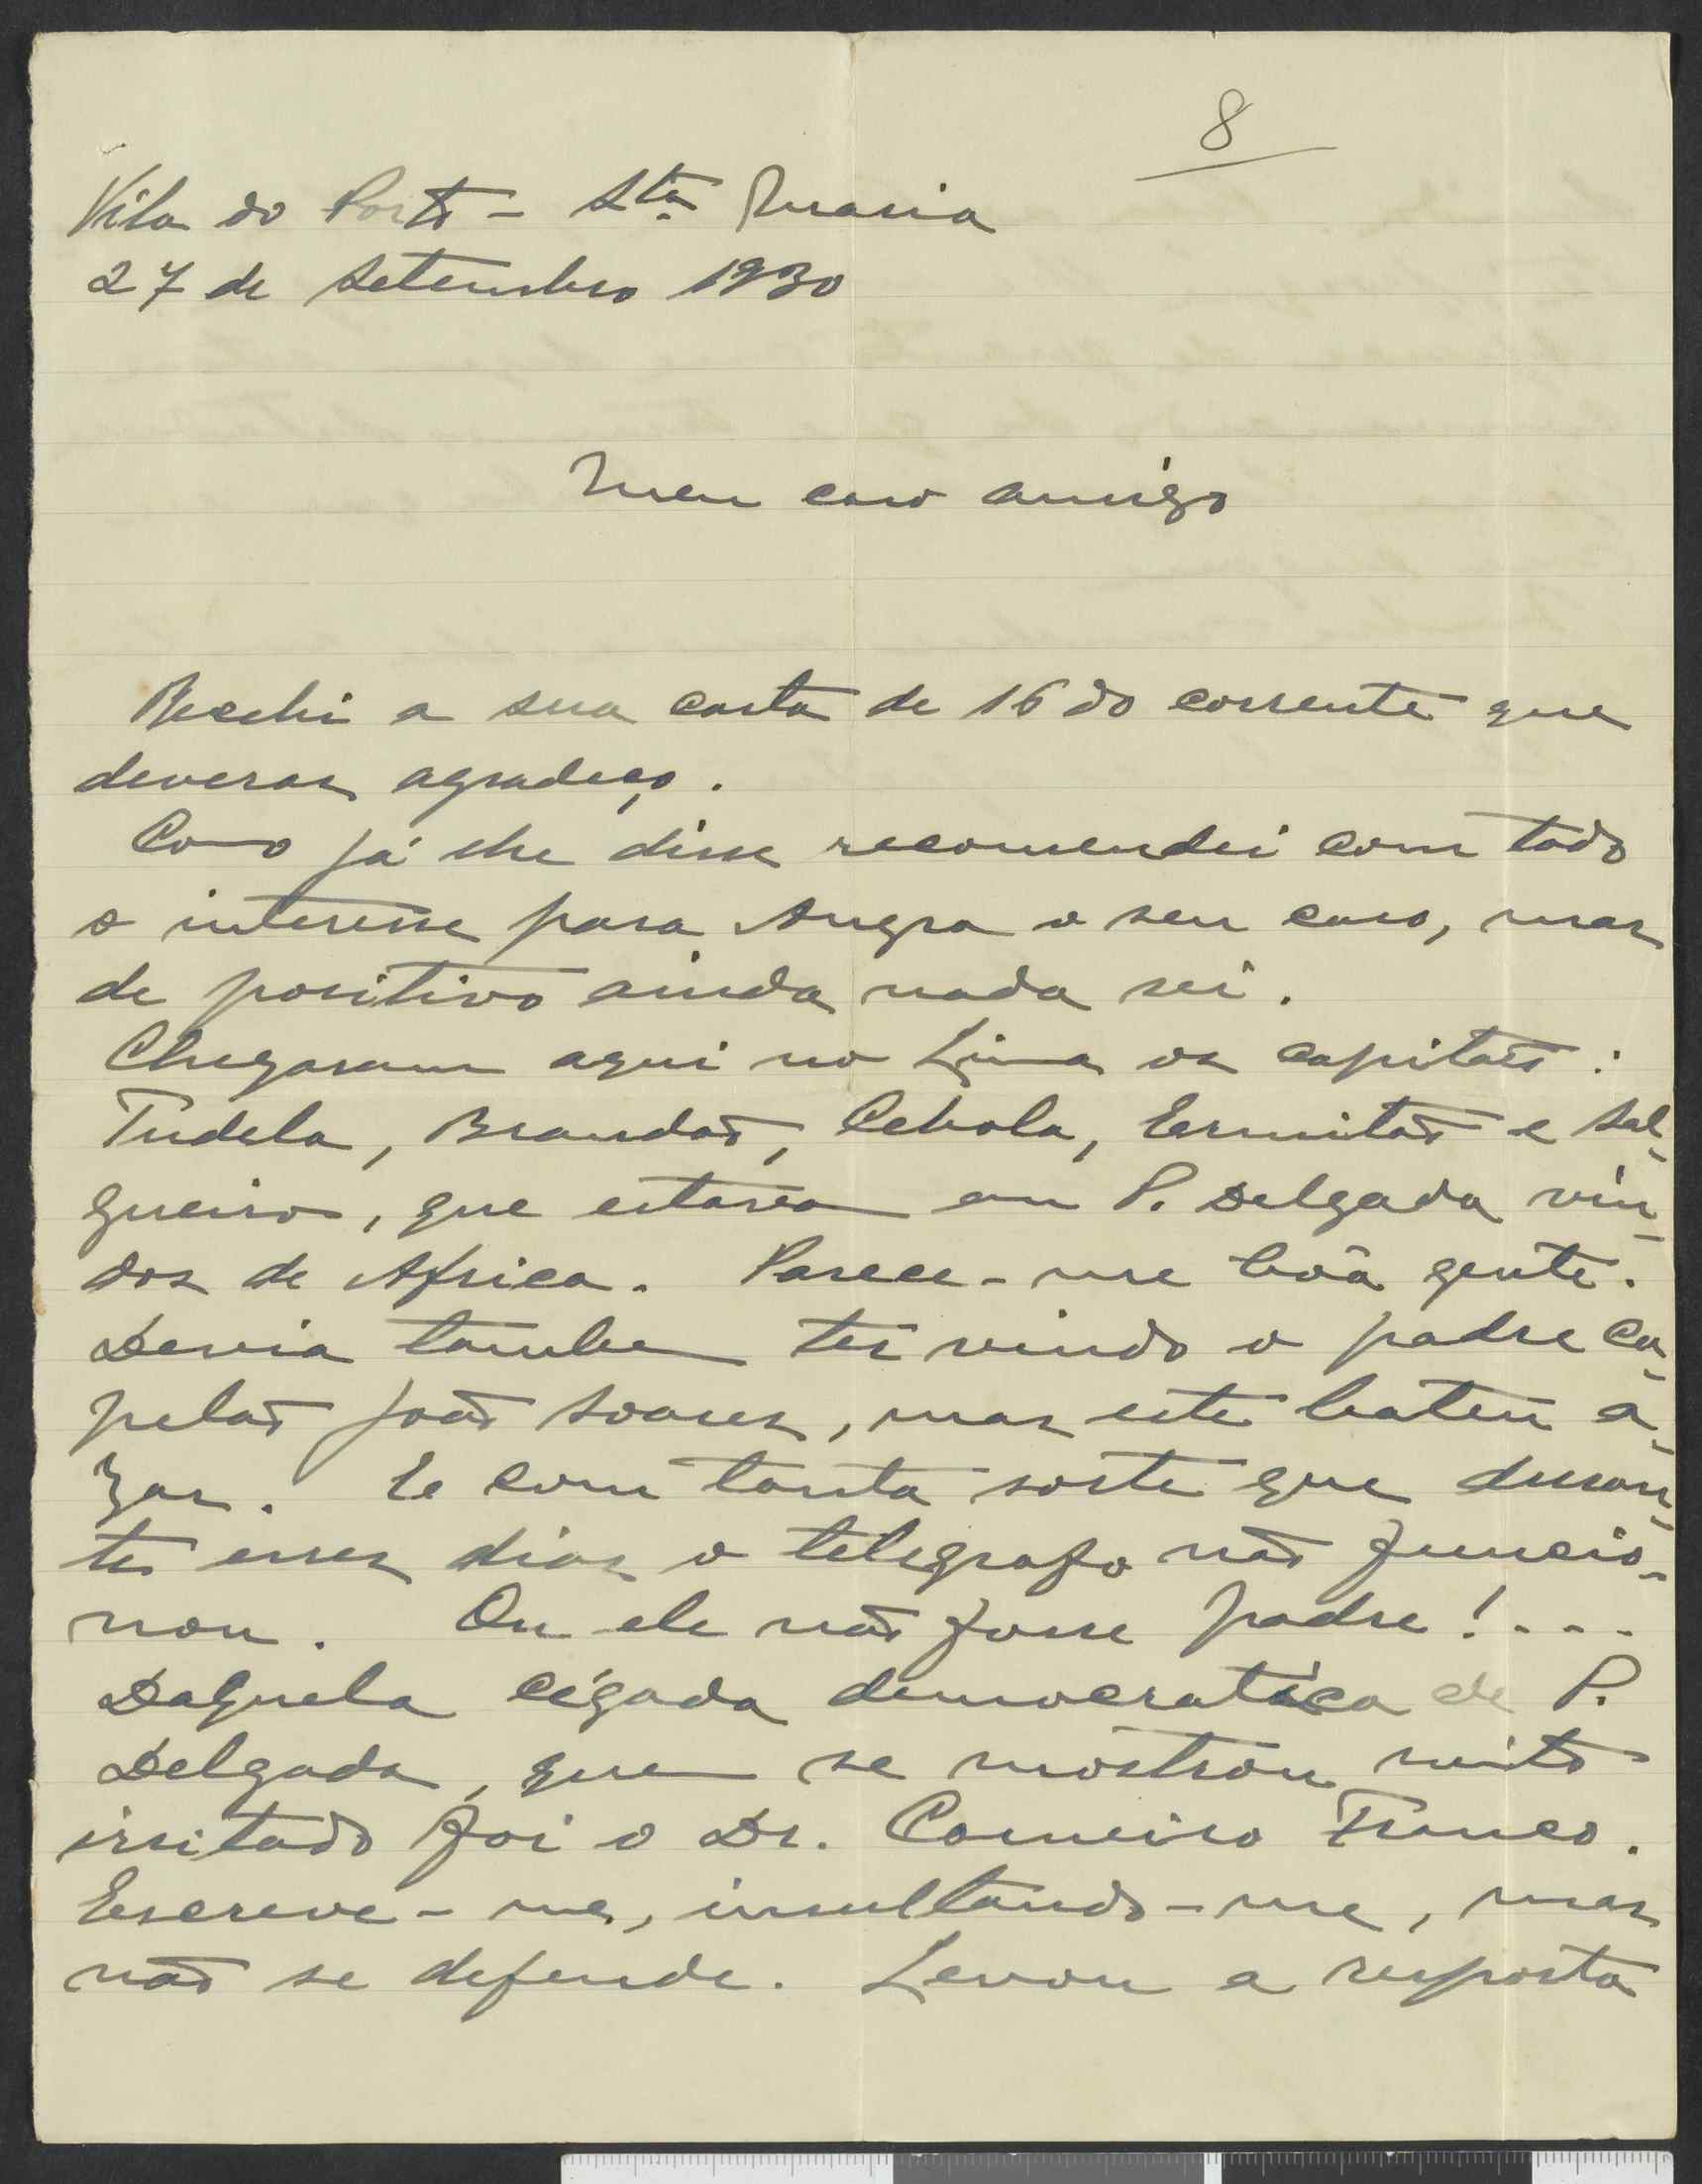 8
Vila do Porto - Sta Maria
27 de Setembro 1930
Meu caro amigo
Recebi a sua carta de 16 do corrente que
deveras agradeço.
Como já lhe disse recomendei com todo
o interesse para Angra o seu caso, mas
de positivo ainda nada sei.
Chegaram aqui no Lima os capitães:
Tudela, Brandão, Cebola, Ermitão e Sal-
gueiro, que estavam em P. Delgada vin-
dos de Africa. Parece-me bôa gente.
Devia tambem ter vindo o padre ca-
pelão João Soares, mas este bateu a-
zas. E com tanta sorte que duran-
te esses dias o telegrafo não funcio-
nou. Ou ele não fosse padre!....
Daquela cégada democratica de P.
Delgada, quem se mostrou muito
irritado foi o Dr. Carneiro Franco.
Escreve-me, insultando-me, mas
não se defende. Levou a resposta